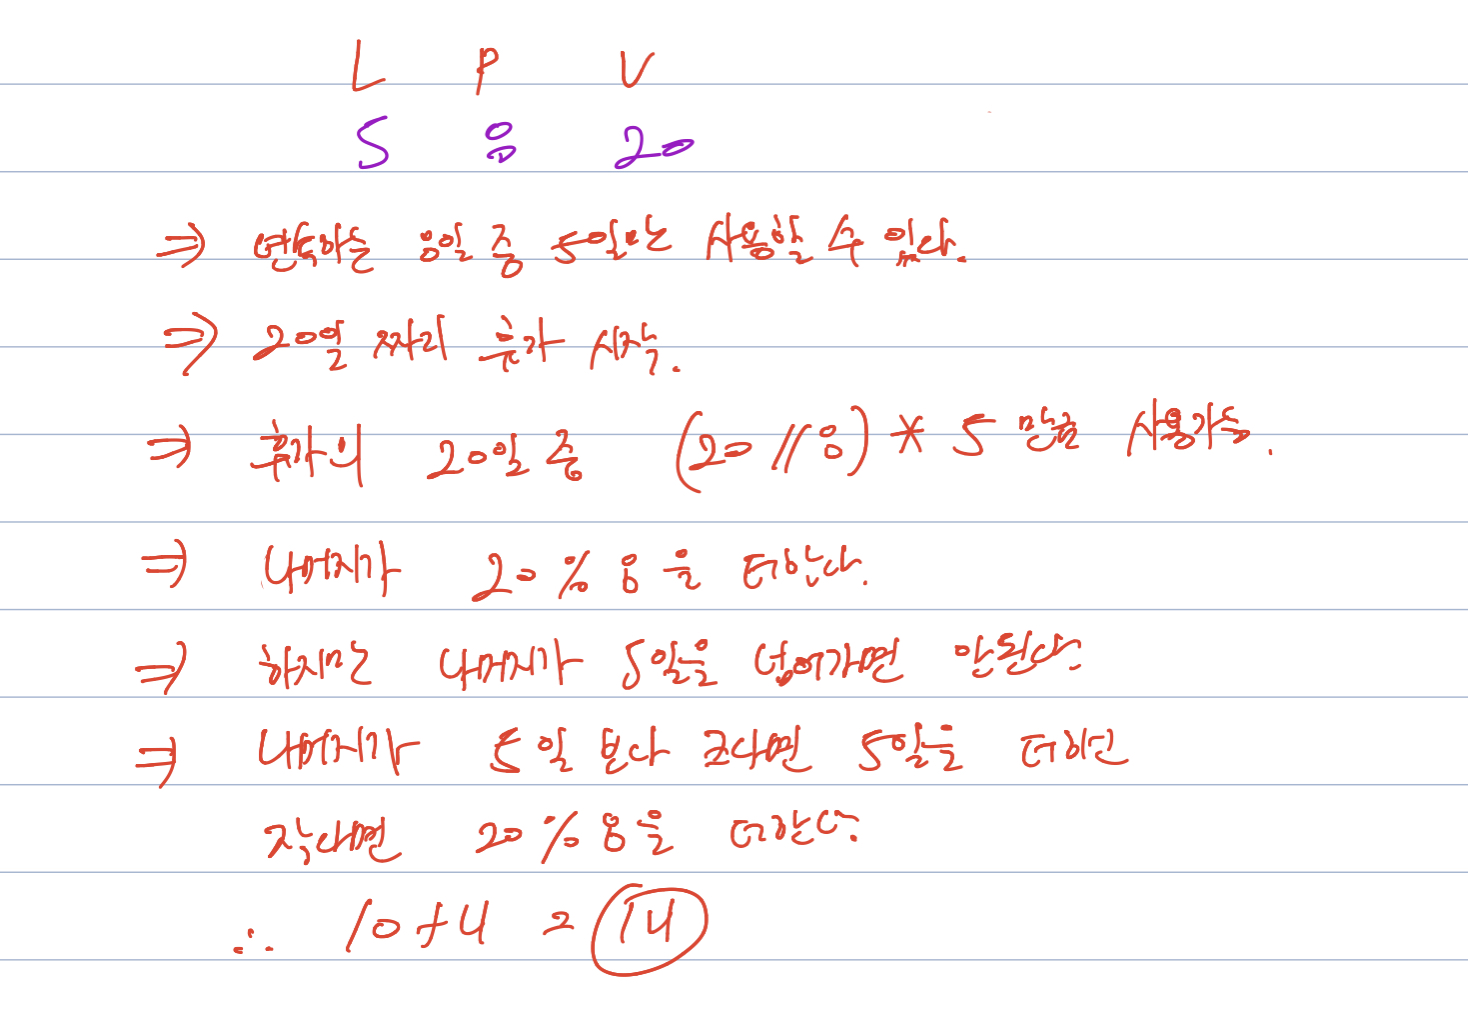 L P V
5 8 20
⇒ 연속하는 8일 중 5일만 사용할 수 있다.
⇒ 20일 짜리 휴가 시작.
⇒ 휴가의 20일 중 (20 // 8) * 5 만큼 사용가능.
⇒ 나머지가 20 % 8 을 더한다.
⇒ 하지만 나머지가 5일을 넘어가면 안된다.
⇒ 나머지가 5일 보다 크다면 5일을 더하고
작다면 20 % 8 을 더한다.
∴ 10 + 4 = 14